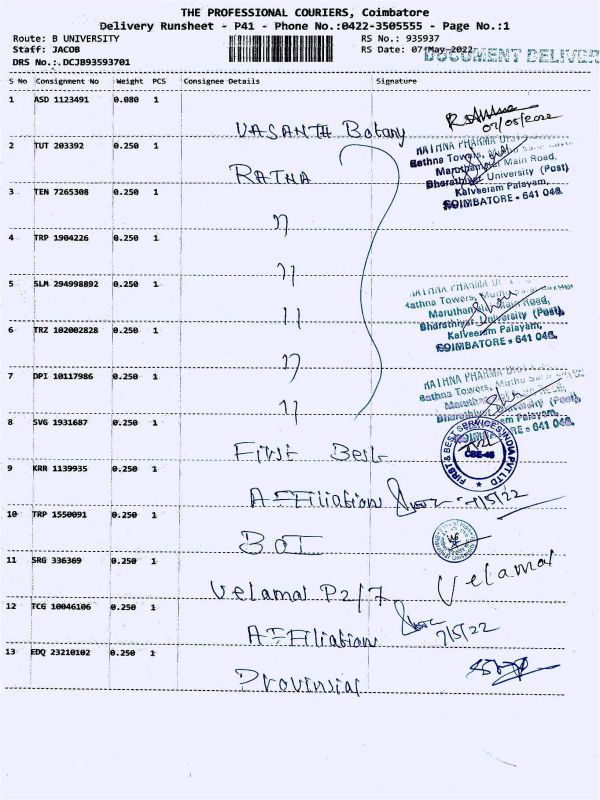 THE PROFESSIONAL COURIERS, Coimbatore
Delivery Runsheet - P41 - Phone No.:0422-3505555 - Page No.:1
Route: B UNIVERSITY RS No.: 935937
Staff: JACOB RS Date: 07-May-2022
DOCUMENT DELIVER
DRS No.:.DCJB93593701
S No Consignment No Weight PCS Consignee Details Signature
1 ASD 1123491 0.080 1
VASANTH Botany 07/05/2022
2 TUT 203392 0.250 1
RATNA
RATHNA PHARMA
Rathna Towers,
Main Road,
Bharathiyar University (Post)
Kalveeram Palayam,
COIMBATORE - 641 046.
3 TEN 7265308 0.250 1
"
4 TRP 1904226 0.250 1
"
5 SLM 294998892 0.250 1
"
RATHNA PHARMA
Rathna Towers,
Main Road,
Bharathiyar University (Post),
Kalveeram Palayam,
COIMBATORE - 641 046.
6 TRZ 102002828 0.250 1
"
7 DPI 10117986 0.250 1
"
RATHNA PHARMA
Rathna Towers,
Bharathiyar University (Post),
Palayam,
641 046.
8 SVG 1931687 0.250 1
First Best
FIRST & BEST SERVICES INDIA PVT LTD
CBE-46
9 KRR 1139935 0.250 1
Affiliation 7/5/22
10 TRP 1550091 0.250 1
BOI
11 SRG 336369 0.250 1
Velamal P2/7 Velamal
12 TCG 10046106 0.250 1
Affiliation 7/5/22
13 EDQ 23210102 0.250 1
Provinsial